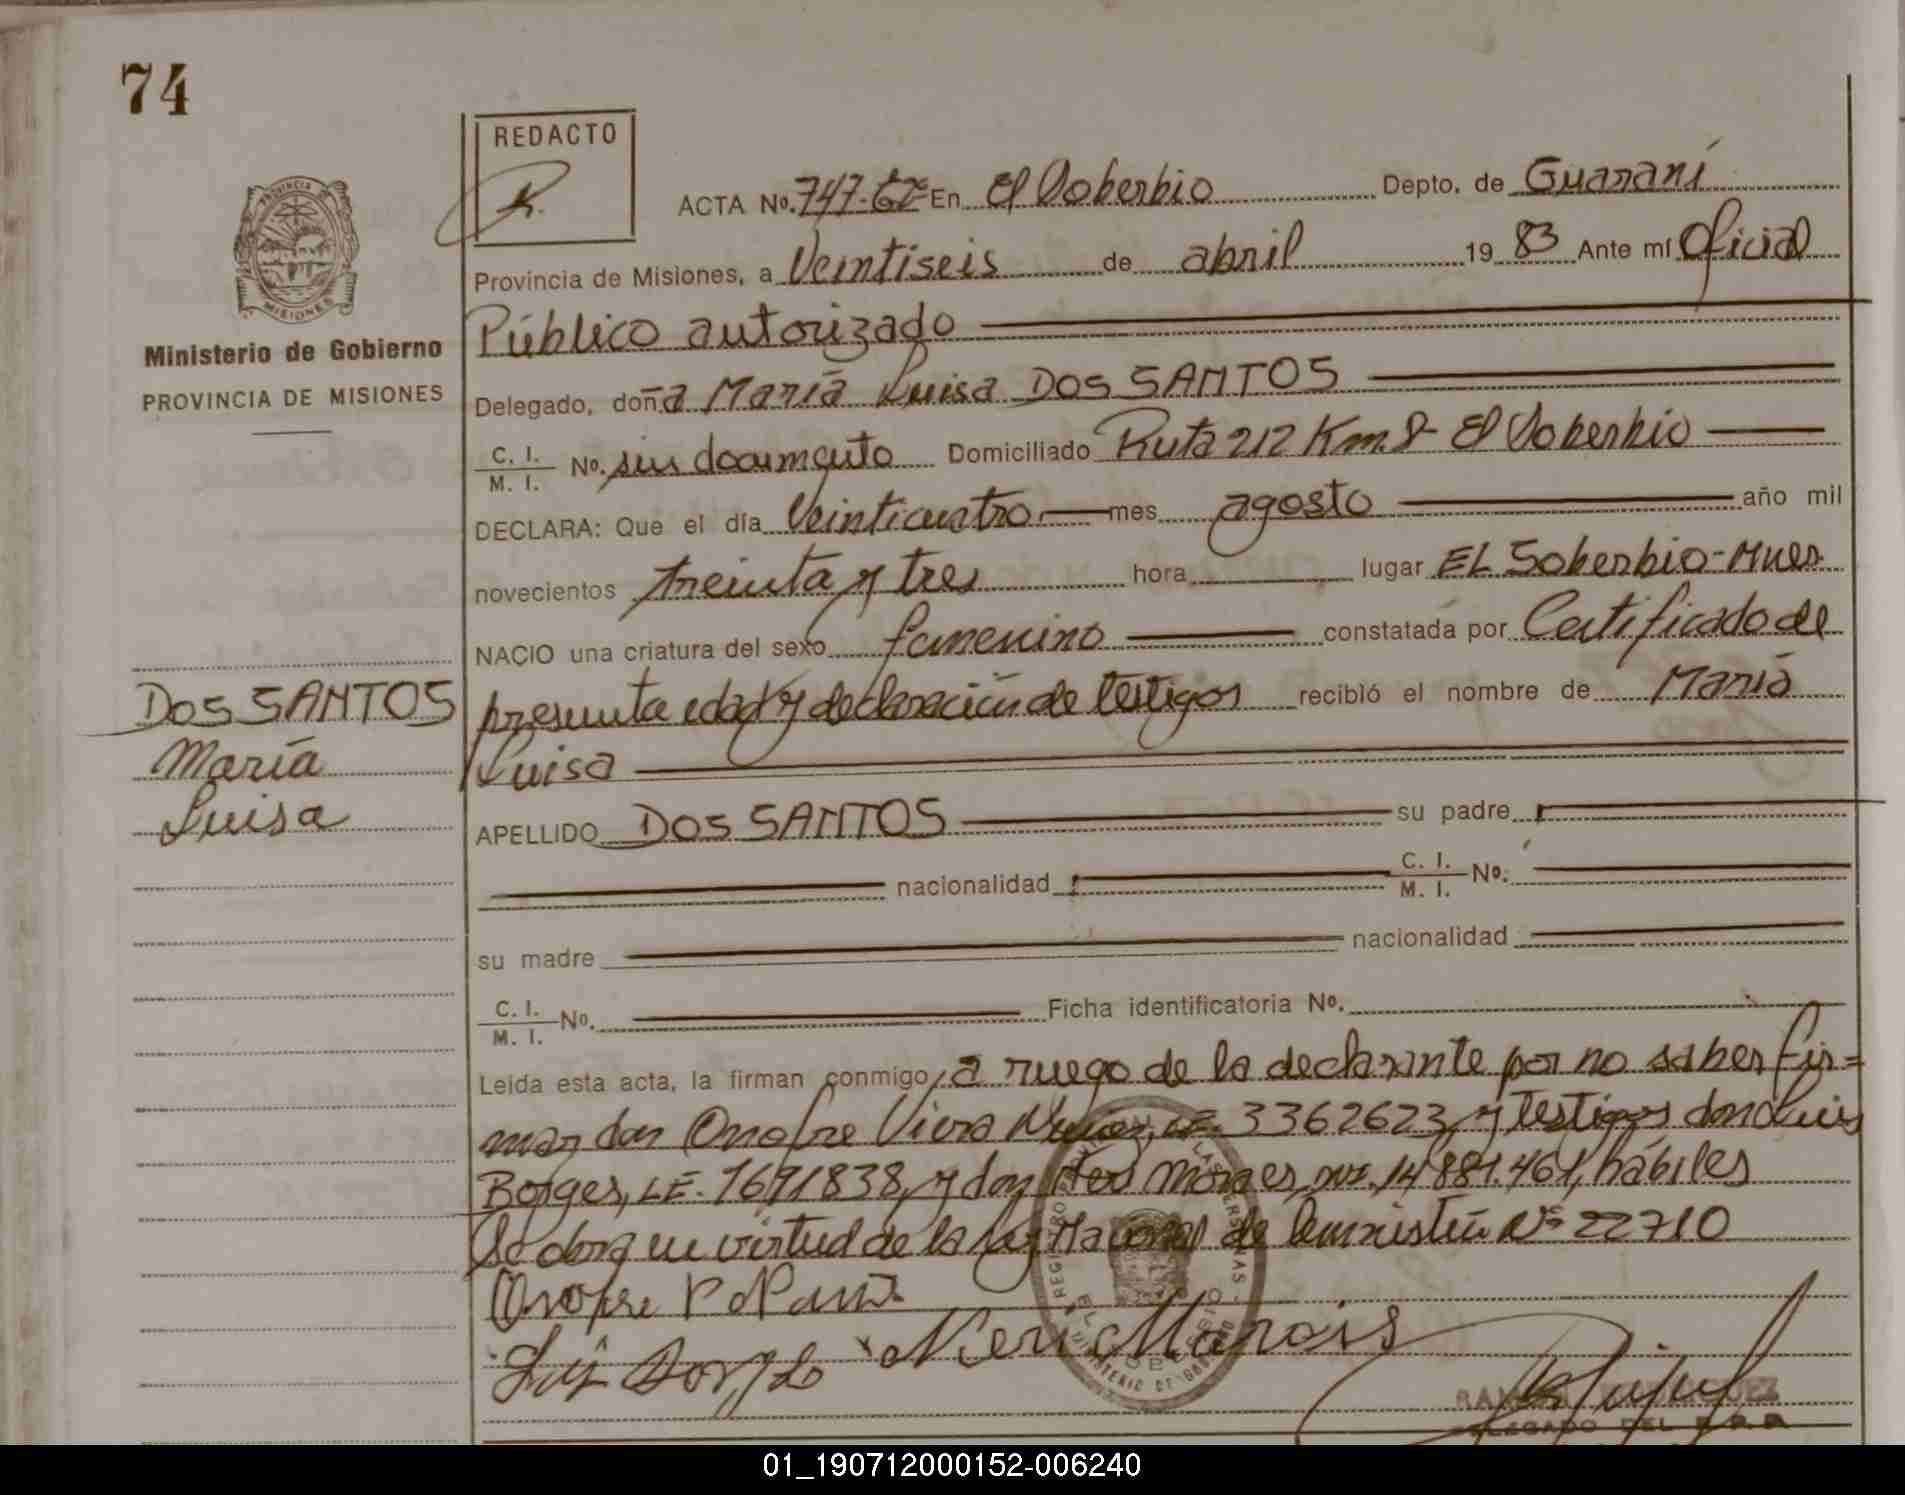 74
REDACTO
ACTA Nº. 747- En El Soberbio Depto. de Guaraní
Provincia de Misiones, a Veintiseis de abril 19 83 Ante mí Oficial
Público autorizado
Ministerio de Gobierno
PROVINCIA DE MISIONES
Delegado, doña María Luisa DOS SANTOS
C. I.
M. I. Nº. sin documento Domiciliado Ruta 212 Km. 8 El Soberbio
DECLARA: Que el día Veinticuatro mes agosto año mil
novecientos treinta y tres hora lugar EL Soberbio-Mnes
NACIO una criatura del sexo femenino constatada por Certificado de
presunta edad y declaración de testigos recibió el nombre de María
Luisa
DOS SANTOS
María
Luisa
APELLIDO DOS SANTOS su padre
nacionalidad C. I.
M. I. Nº.
su madre nacionalidad
C. I.
M. I. Nº. Ficha identificatoria Nº.
Leída esta acta, la firman conmigo, a ruego de la declarante por no saber fir=
mar don Onofre Viera Nuñez, LE. 3362623, y testigos don Luis
Borges, LE. 7671838, y don Neri Moraes, 14.881.461, hábiles
Se labra en virtud de la Ley Nacional de Nº 22710
Onofre
Neri Marois
REGISTRO LAS PERSONAS
EL SOBERBIO
MINISTERIO DE GOBIERNO
DELEGADO DEL R.P.P.
01_190712000152-006240